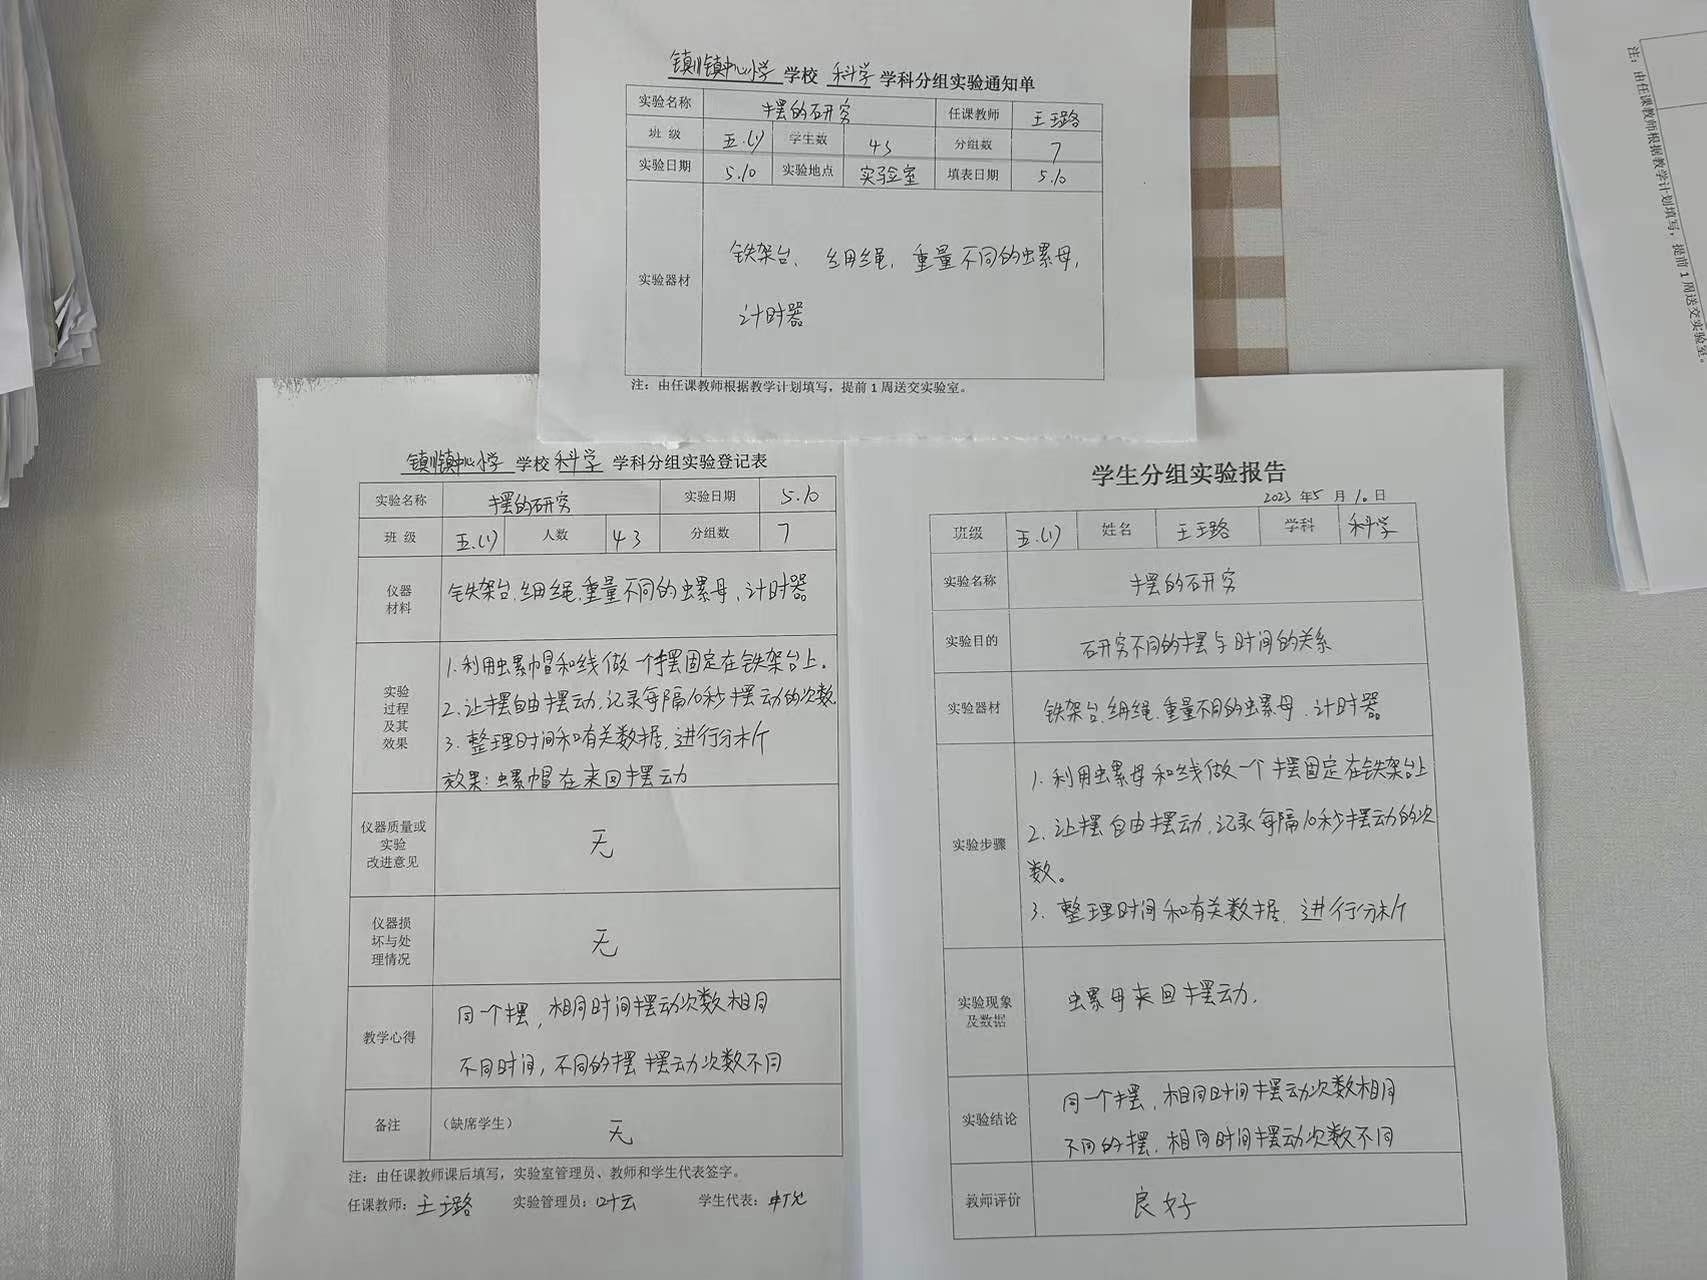 镇川镇中心小学 学校 科学 学科分组实验通知单
实验名称 摆的研究 任课教师 王璐
班 级 五.(1) 学生数 43 分组数 7
实验日期 5.10 实验地点 实验室 填表日期 5.10
实验器材
铁架台、细绳、重量不同的螺母,
计时器
注:由任课教师根据教学计划填写,提前1周送交实验室。
镇川镇中心小学 学校 科学 学科分组实验登记表
实验名称 摆的研究 实验日期 5.10
班 级 五.(1) 人数 43 分组数 7
仪器
材料
铁架台、细绳、重量不同的螺母、计时器
实验
过程
及其
效果
1. 利用螺帽和线做一个摆固定在铁架台上.
2. 让摆自由摆动,记录每隔10秒摆动的次数
3. 整理时间和有关数据,进行分析
效果:螺帽在来回摆动
仪器质量或
实验
改进意见
无
仪器损
坏与处
理情况
无
教学心得
同一个摆,相同时间摆动次数相同
不同时间,不同的摆摆动次数不同
备注 (缺席学生) 无
注:由任课教师课后填写,实验室管理员、教师和学生代表签字。
任课教师: 王璐 实验管理员: 叶云 学生代表:
学生分组实验报告
2023 年 5 月 10 日
班级 五.(1) 姓名 王璐 学科 科学
实验名称 摆的研究
实验目的 研究不同的摆与时间的关系
实验器材 铁架台、细绳、重量不同的螺母、计时器
实验步骤
1. 利用螺母和线做一个摆固定在铁架台上
2. 让摆自由摆动,记录每隔10秒摆动的次
数。
3. 整理时间和有关数据,进行分析
实验现象
及数据
螺母来回摆动.
实验结论
同一个摆,相同时间摆动次数相同
不同的摆,相同时间摆动次数不同
教师评价 良好
注:由任课教师根据教学计划填写,提前1周送交实验室。